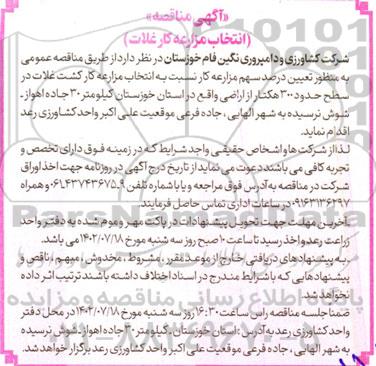 «آگهی مناقصه»
(انتخاب مزارعه کار غلات)
شرکت کشاورزی و دامپروری نگین فام خوزستان در نظر دارد از طریق مناقصه عمومی
به منظور تعیین درصد سهم مزارعه کار نسبت به انتخاب مزارعه کار کشت غلات در
سطح حدود ۳۰۰ هکتار از اراضی واقع در استان خوزستان کیلومتر ۳۰ جاده اهواز-
شوش نرسیده به شهر الهایی، جاده فرعی موقعیت علی اکبر واحد کشاورزی رعد
اقدام نماید.
لذا از شرکت ها و اشخاص حقیقی واجد شرایط که در زمینه فوق دارای تخصص و
تجربه کافی می باشند دعوت می نماید از تاریخ درج آگهی در روزنامه جهت اخذ اوراق
شرکت در مناقصه به آدرس فوق مراجعه و یا با شماره تلفن ۹-۰۶۱۴۳۷۴۳۶۷۵ و همراه
۰۹۱۶۳۱۳۶۲۹۷ در ساعات اداری تماس حاصل فرمایند.
آخرین مهلت جهت تحویل پیشنهادات در پاکت مهر و موم شده به دفتر واحد
زراعت رعد واخذ رسید تا ساعت ۱۰ صبح روز سه شنبه مورخ ۱۴۰۲/۰۷/۱۸ می باشد.
به پیشنهادهای دریافتی خارج از موعد مقرر، مشروط، مخدوش، مبهم، ناقص و
پیشنهادهایی که با شرایط مندرج در اسناد اختلاف داشته باشند ترتیب اثر داده
نخواهد شد.
ضمنا جلسه مناقصه راس ساعت ۱۶:۳۰ روز سه شنبه مورخ ۱۴۰۲/۰۷/۱۸ در محل دفتر
واحد کشاورزی رعد به آدرس: استان خوزستان- کیلومتر ۳۰ جاده اهواز- شوش نرسیده
به شهر الهایی، جاده فرعی موقعیت علی اکبر واحد کشاورزی رعد برگزار خواهد شد.